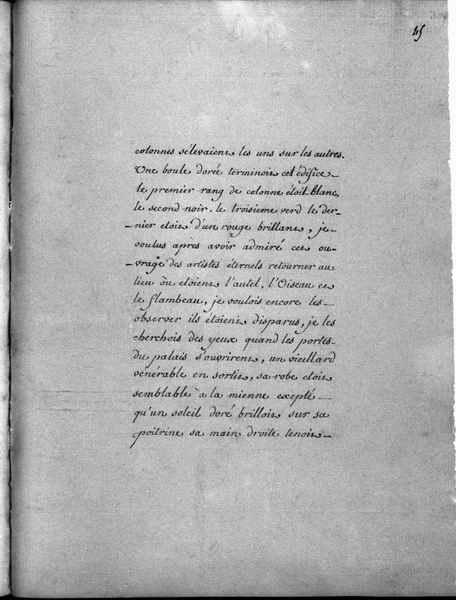 45
colonnes s'elevaient les uns sur les autres.
Une boule doré terminoit cet edifice
le premier rang de colonne étoit blanc,
le second noir. le troisieme verd le der-
nier etoit d'un rouge brillant, je
voulus apres avoir admiré cet ou-
-vrage des artistes éternels retourner au
lieu ou etoient l'autel, l'Oiseau et
le flambeau, je voulois encore les
observer ils étoient disparus, je les
cherchois des yeux quand les portes
du palais s'ouvrirent, un vieillard
vénérable en sortit, sa robe etoit
semblable a la mienne excepté
qu'un soleil doré brilloit sur sa
poitrine sa main droite tenoit